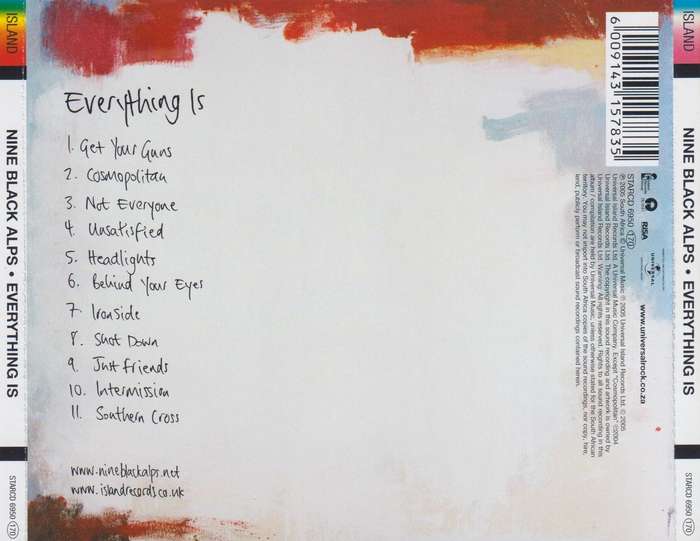 ISLAND
NINE BLACK ALPS • EVERYTHING IS
STARCD 6950 (170)
Everything Is
1. Get Your Guns
2. Cosmopolitan
3. Not Everyone
4. Unsatisfied
5. Headlights
6. Behind Your Eyes
7. Ironside
8. Shot Down
9. Just Friends
10. Intermission
11. Southern Cross
www.nineblackalps.net
www.islandrecords.co.uk
6 009143 157835
STARCD 6950 (170)
RISA
UNIVERSAL
www.universalrock.co.za
℗ 2005 South Africa © Universal Music ℗ 2005 Universal Island Records Ltd. © 2005
Universal Island Records Ltd. A Universal Music Company. Except "Cosmopolitan" ℗2004
Universal Island Records Ltd. The copyright in this sound recording and artwork is owned by
Universal Island Records Ltd. Warning: All rights reserved. Rights to all sound recording in this
album / compilation are held by Universal Music, unless otherwise stated for the South African
territory. You may not import into South Africa copies of the sound recordings, nor copy, hire,
lend, publicly perform or broadcast sound recordings contained herein.
ISLAND
NINE BLACK ALPS • EVERYTHING IS
STARCD 6950 (170)